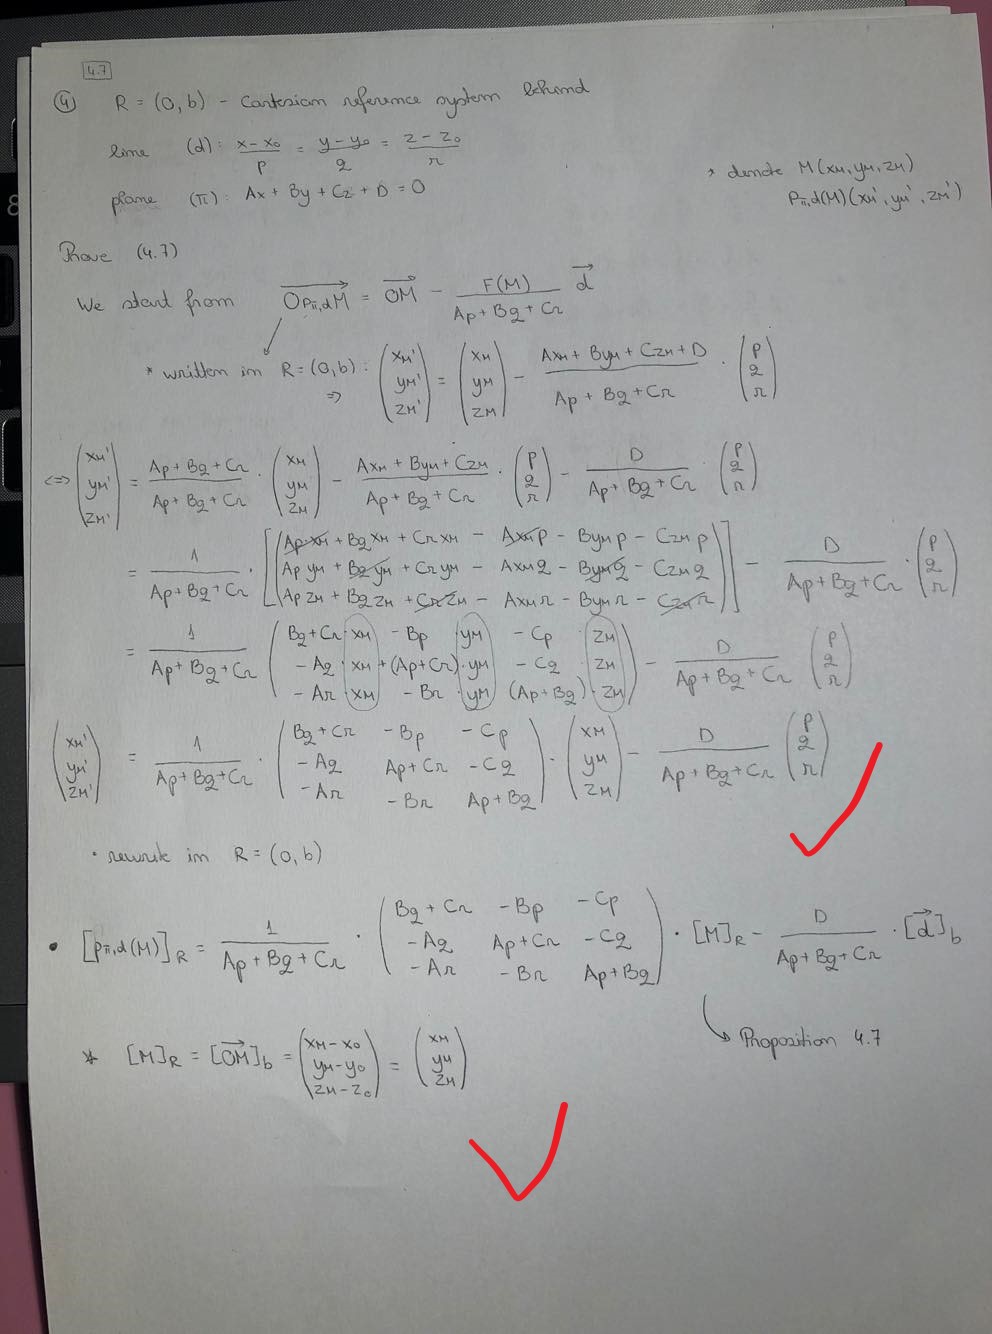 4.7
④ R = (O, b) - Cartesian reference system behind
line (d): \frac{x-x_0}{p} = \frac{y-y_0}{q} = \frac{z-z_0}{r}
plane (π): Ax + By + Cz + D = 0
, denote M(x_M, y_M, z_M)
p_{π,d}(M)(x_M', y_M', z_M')
Prove (4.7)
We start from \overrightarrow{Op_{π,d}M} = \overrightarrow{OM} - \frac{F(M)}{Ap+Bq+Cr} \overrightarrow{d}
* written in R = (O, b): ⇒ \begin{pmatrix} x_M' \\ y_M' \\ z_M' \end{pmatrix} = \begin{pmatrix} x_M \\ y_M \\ z_M \end{pmatrix} - \frac{Ax_M + By_M + Cz_M + D}{Ap + Bq + Cr} · \begin{pmatrix} p \\ q \\ r \end{pmatrix}
<=> \begin{pmatrix} x_M' \\ y_M' \\ z_M' \end{pmatrix} = \frac{Ap+Bq+Cr}{Ap+Bq+Cr} · \begin{pmatrix} x_M \\ y_M \\ z_M \end{pmatrix} - \frac{Ax_M + By_M + Cz_M}{Ap+Bq+Cr} · \begin{pmatrix} p \\ q \\ r \end{pmatrix} - \frac{D}{Ap+Bq+Cr} · \begin{pmatrix} p \\ q \\ r \end{pmatrix}
= \frac{1}{Ap+Bq+Cr} · \left[ \begin{pmatrix} Apx_M + Bqx_M + Crx_M - Ax_Mp - By_Mp - Cz_Mp \\ Apy_M + Bqy_M + Cry_M - Ax_Mq - By_Mq - Cz_Mq \\ Apz_M + Bqz_M + Crz_M - Ax_Mr - By_Mr - Cz_Mr \end{pmatrix} \right] - \frac{D}{Ap+Bq+Cr} · \begin{pmatrix} p \\ q \\ r \end{pmatrix}
= \frac{1}{Ap+Bq+Cr} \begin{pmatrix} Bq+Cr · x_M & -Bp · y_M & -Cp · z_M \\ -Aq · x_M & +(Ap+Cr) · y_M & -Cq · z_M \\ -Ar · x_M & -Br · y_M & (Ap+Bq) · z_M \end{pmatrix} - \frac{D}{Ap+Bq+Cr} \begin{pmatrix} p \\ q \\ r \end{pmatrix}
\begin{pmatrix} x_M' \\ y_M' \\ z_M' \end{pmatrix} = \frac{1}{Ap+Bq+Cr} · \begin{pmatrix} Bq+Cr & -Bp & -Cp \\ -Aq & Ap+Cr & -Cq \\ -Ar & -Br & Ap+Bq \end{pmatrix} · \begin{pmatrix} x_M \\ y_M \\ z_M \end{pmatrix} - \frac{D}{Ap+Bq+Cr} \begin{pmatrix} p \\ q \\ r \end{pmatrix}
· rewrite in R = (O, b)
• [p_{π,d}(M)]_R = \frac{1}{Ap+Bq+Cr} · \begin{pmatrix} Bq+Cr & -Bp & -Cp \\ -Aq & Ap+Cr & -Cq \\ -Ar & -Br & Ap+Bq \end{pmatrix} · [M]_R - \frac{D}{Ap+Bq+Cr} · [\overrightarrow{d}]_b
↳ Proposition 4.7
* [M]_R = [\overrightarrow{OM}]_b = \begin{pmatrix} x_M - x_0 \\ y_M - y_0 \\ z_M - z_0 \end{pmatrix} = \begin{pmatrix} x_M \\ y_M \\ z_M \end{pmatrix}